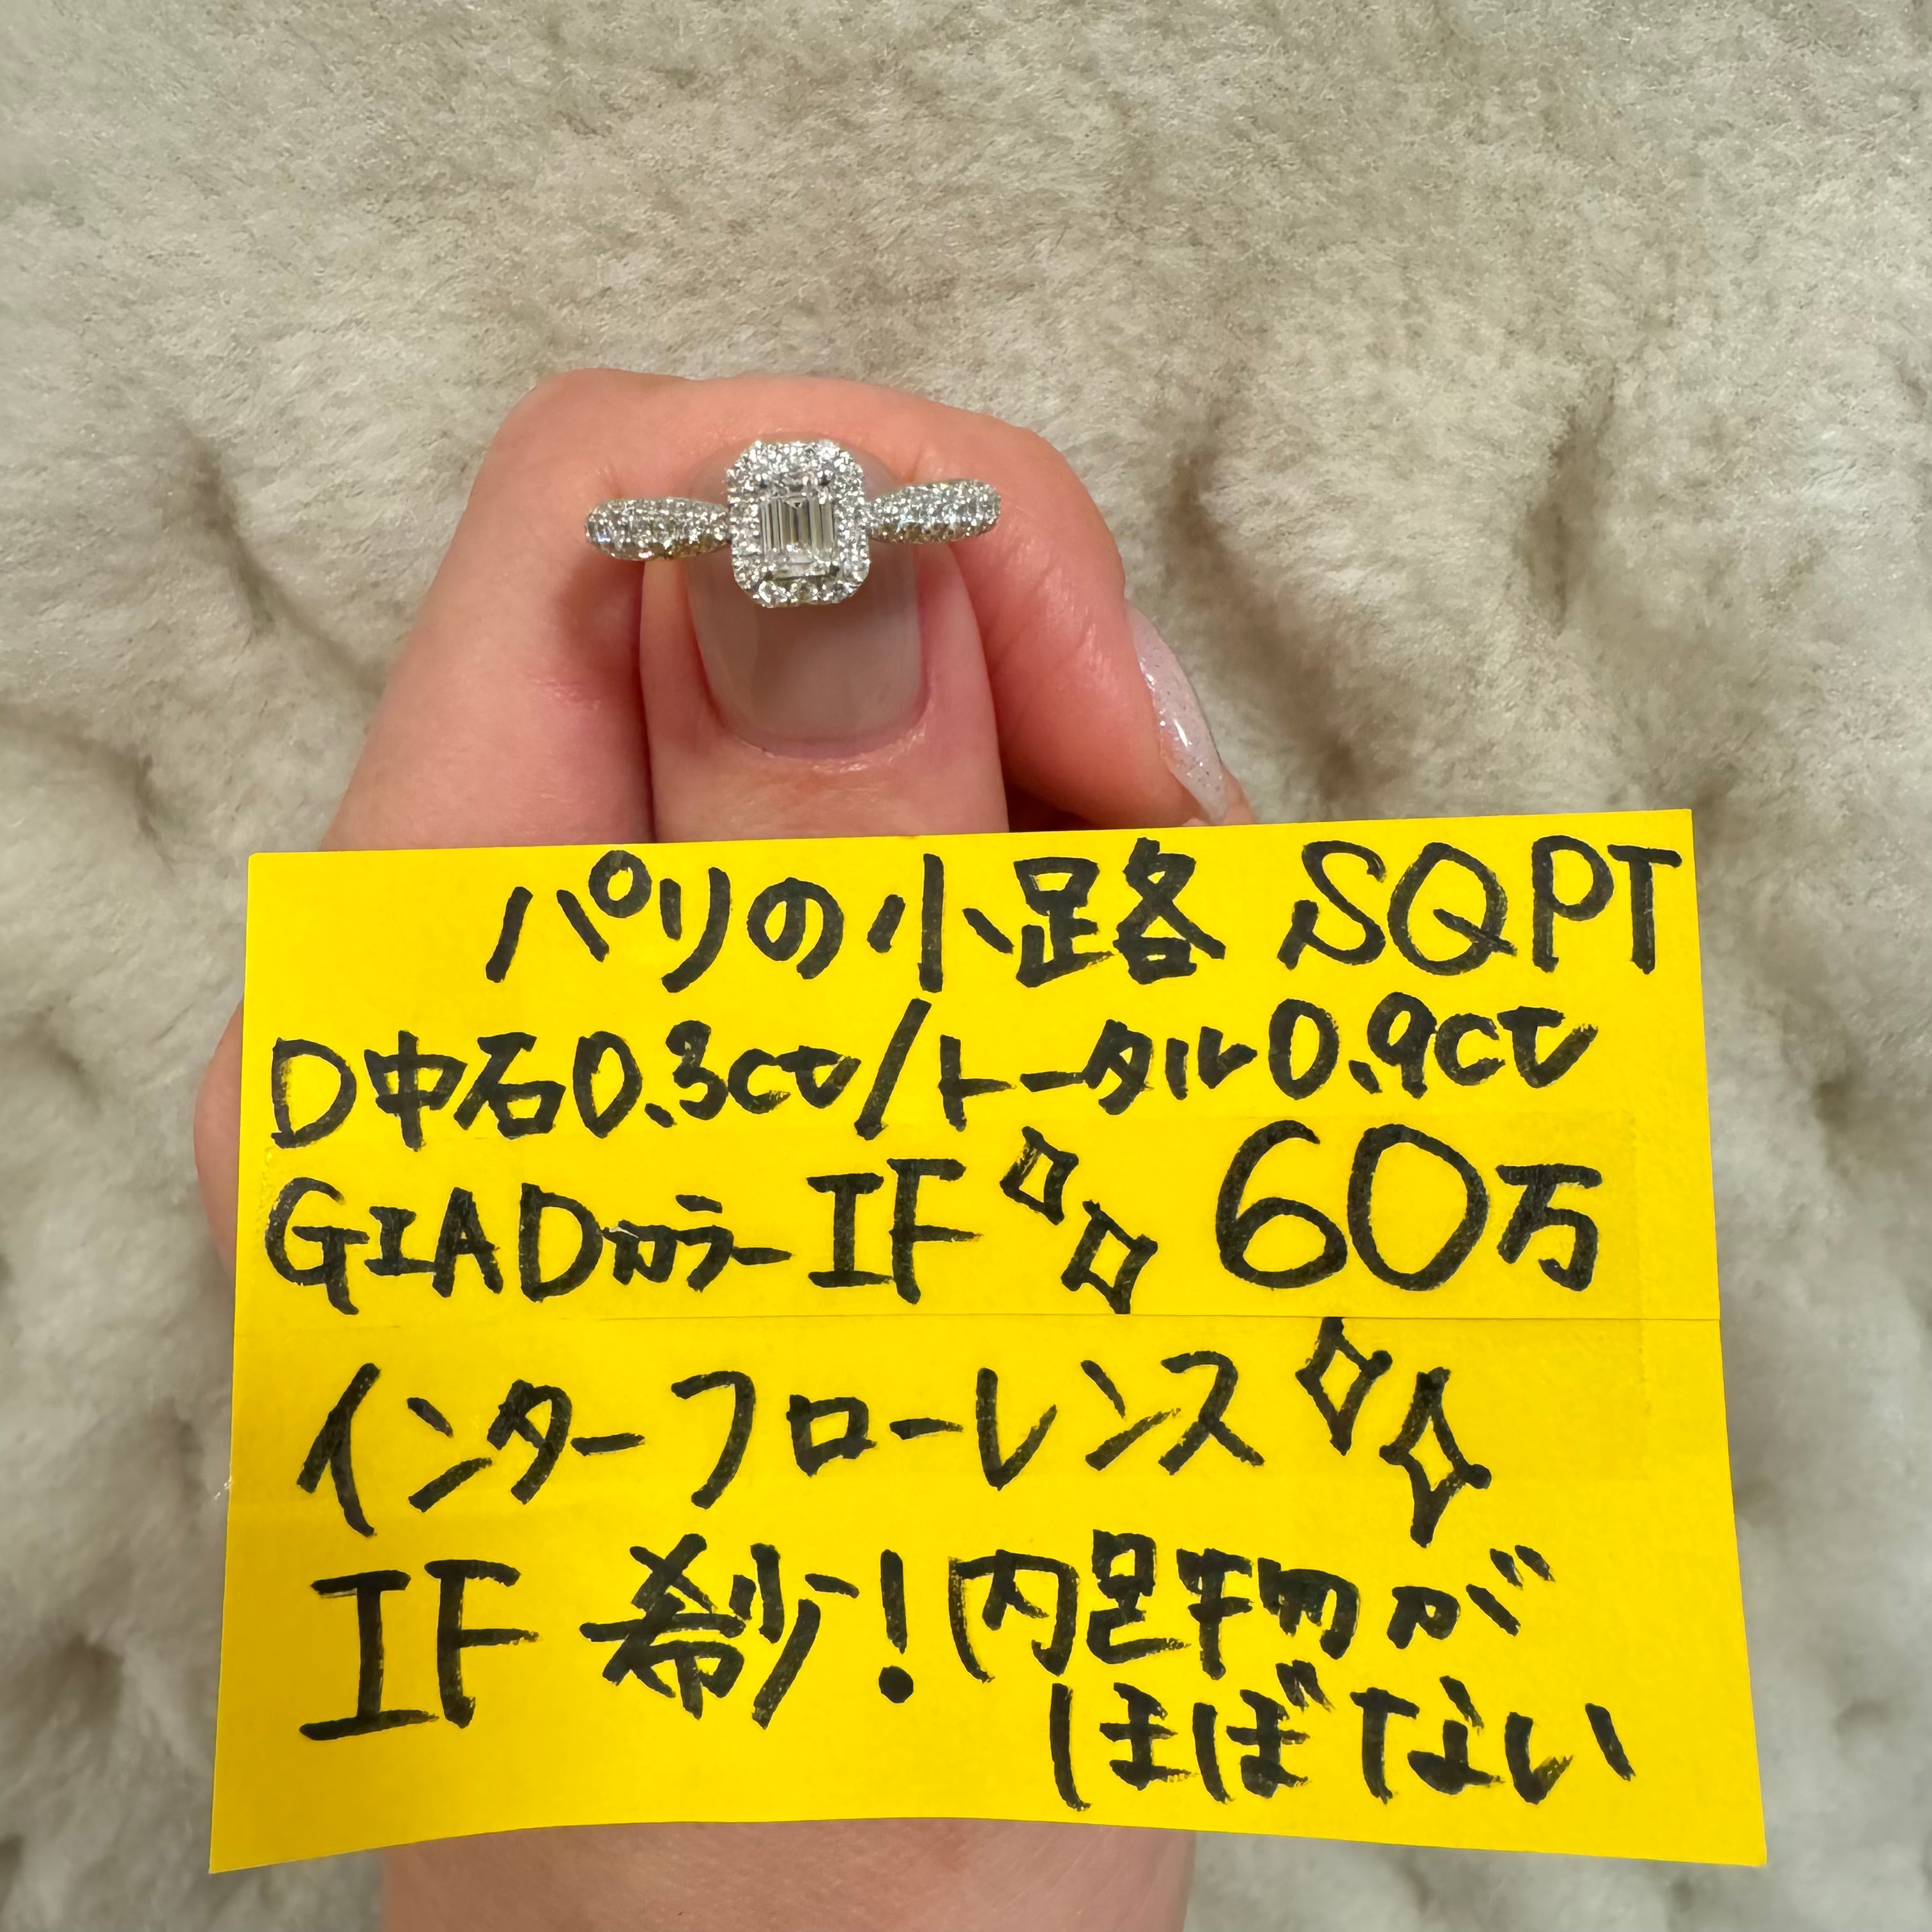 パリの小路 SQPT
D中石0.3ct/トータル0.9ct
GIADカラー IF 60万
インターフローレンス
IF 希少!内包物が
ほぼない